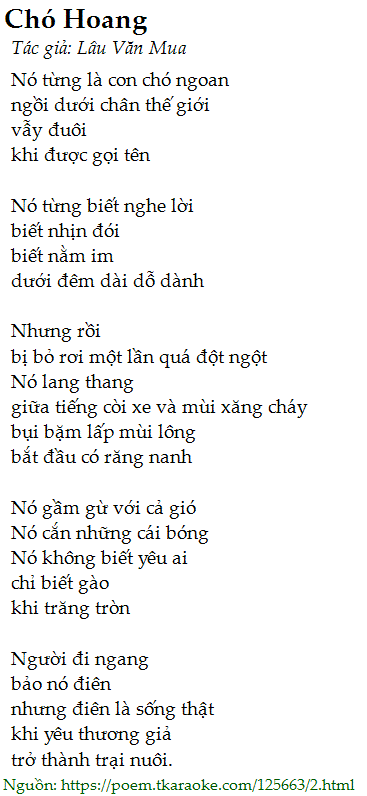 Chó Hoang
Tác giả: Lâu Văn Mua
Nó từng là con chó ngoan
ngồi dưới chân thế giới
vẫy đuôi
khi được gọi tên
Nó từng biết nghe lời
biết nhịn đói
biết nằm im
dưới đêm dài dỗ dành
Nhưng rồi
bị bỏ rơi một lần quá đột ngột
Nó lang thang
giữa tiếng còi xe và mùi xăng cháy
bụi bặm lấp mùi lông
bắt đầu có răng nanh
Nó gầm gừ với cả gió
Nó cắn những cái bóng
Nó không biết yêu ai
chỉ biết gào
khi trăng tròn
Người đi ngang
bảo nó điên
nhưng điên là sống thật
khi yêu thương giả
trở thành trại nuôi.
Nguồn: https://poem.tkaraoke.com/125663/2.html